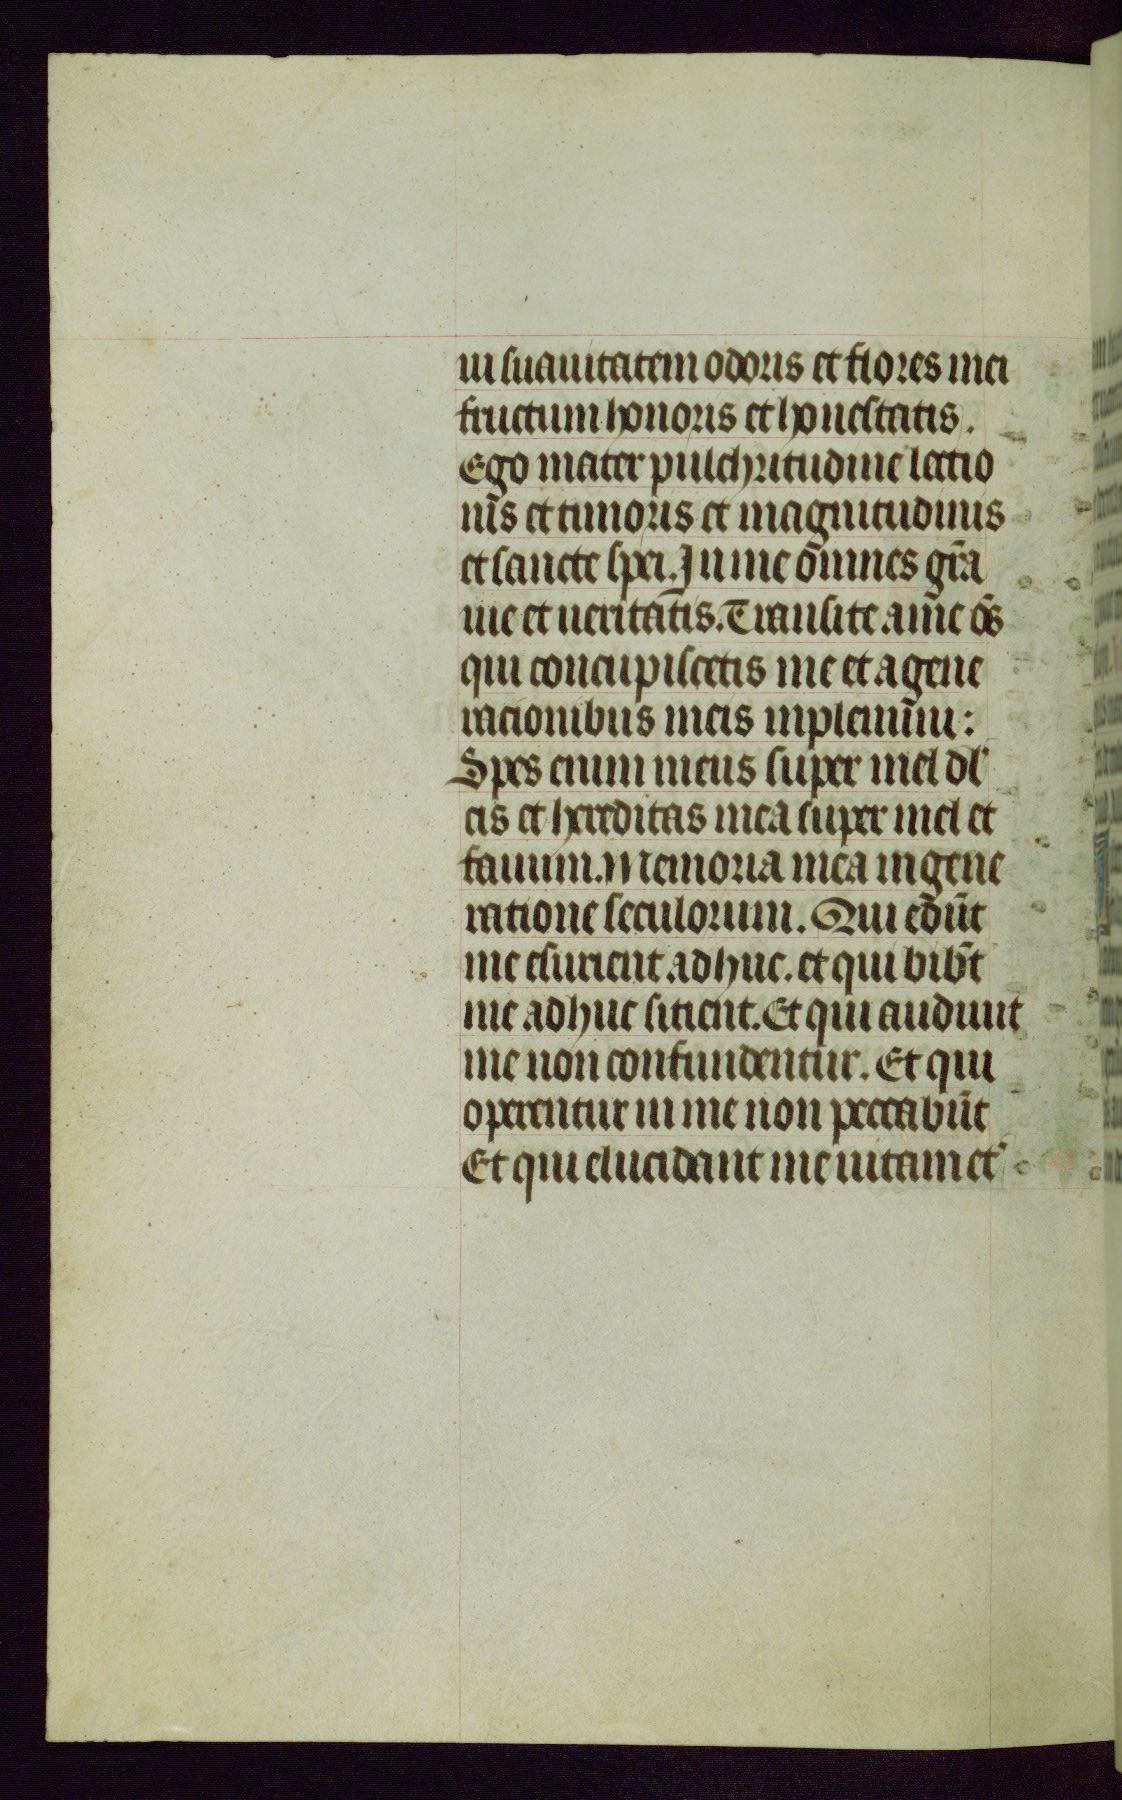 ui suauitatem odoris et flores mei
fructum honoris et honestatis.
Ego mater pulchritudine lectio
nis̄ et timoris et magnitudinis
et sancte spei. In me om̄nes gr̄a
uie et ueritat̄is. Transite a me om̄s
qui concupiscetis me et a gene
racionibus meis inpleminīu:
Spes enim meus super mel dl'
cis et hereditas mea super mel et
fauum. Memoria mea in gene
ratione seculorum. Qui edūt
me esurient adhuc. et qui bibt̄
me adhuc sitient. Et qui audiunt
me non confundentur. Et qui
operentur in me non peccabūt
Et qui elucidant me uitam et'